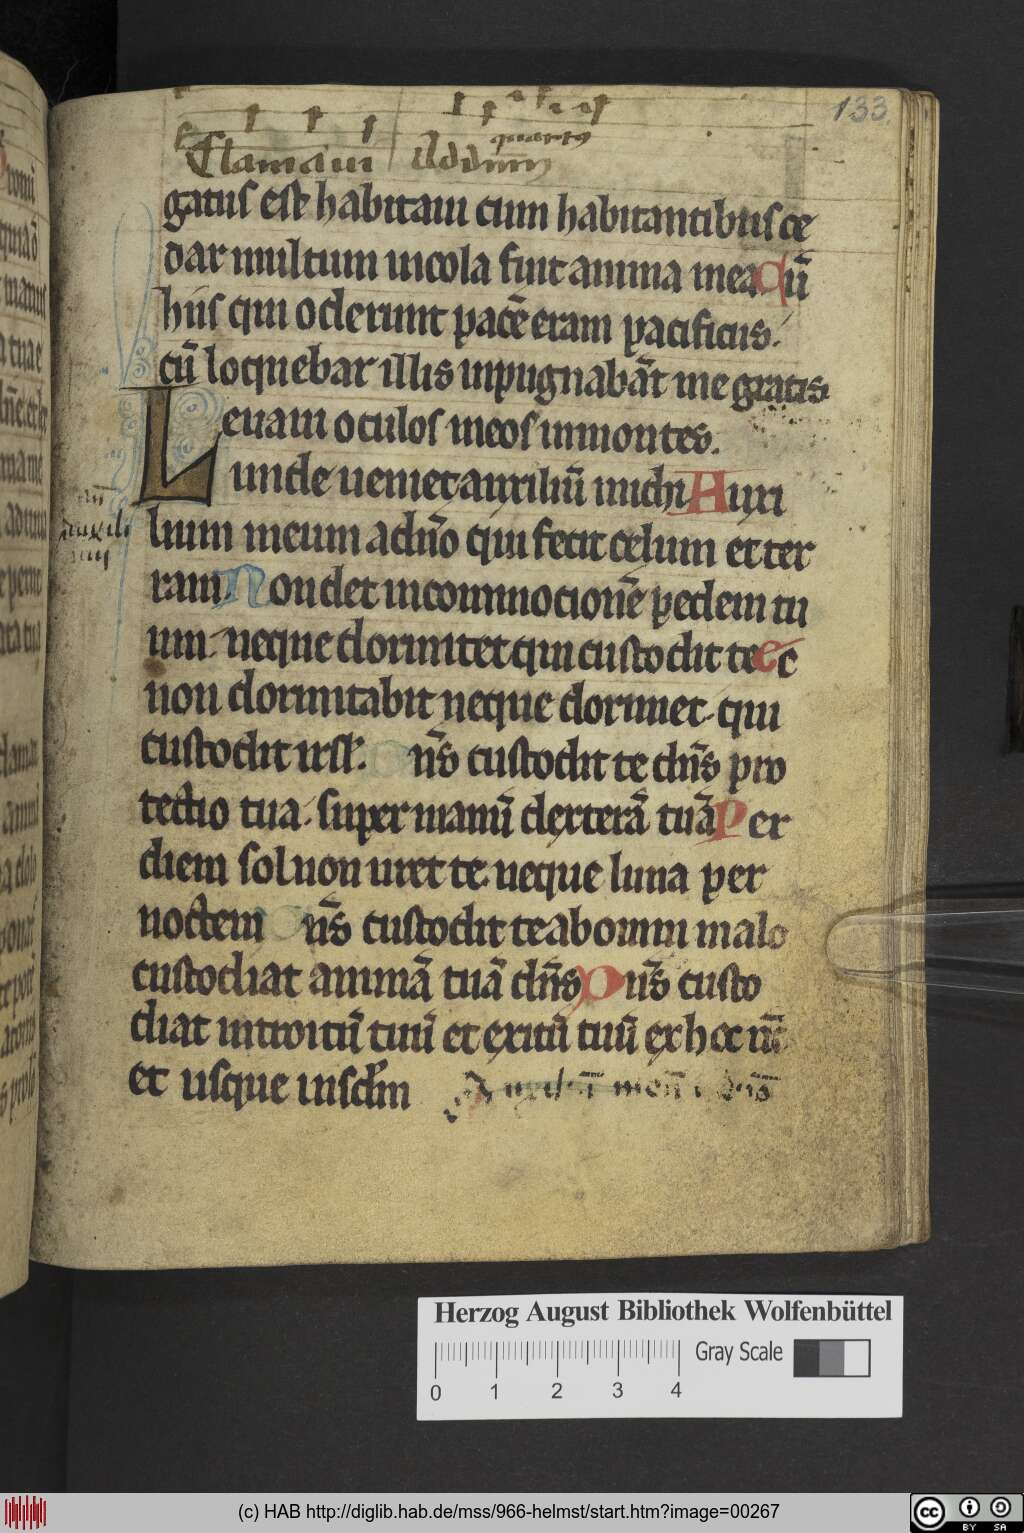 133
quartus
Clamaui
gatus est habitaui cum habitantibus ce
dar multum incola fuit anima mea Cū
hiis qui oderunt pacē eram pacificus.
cū loquebar illis inpugnabāt me gratis
Leuaui oculos meos in montes.
unde ueniet auxiliū michi Auxi
lium meum a dn̄o qui fecit celum et ter
ram. Non det in commocionē pedem tu
um. neque dormitet qui custodit te Ec
non dormitabit neque dormiet. qui
custodit isrl. Dn̄s custodit te dn̄s pro
tectio tua. super manū dexterā tuā Per
diem sol non uret te. neque luna per
noctem Dn̄s custodit te ab omni malo
custodiat animā tuā dn̄s Dn̄s custo
diat introitū tuū et exitū tuū ex hoc nūc
et usque in sclm
Herzog August Bibliothek Wolfenbüttel
Gray Scale
0 1 2 3 4
(c) HAB http://diglib.hab.de/mss/966-helmst/start.htm?image=00267
cc BY SA